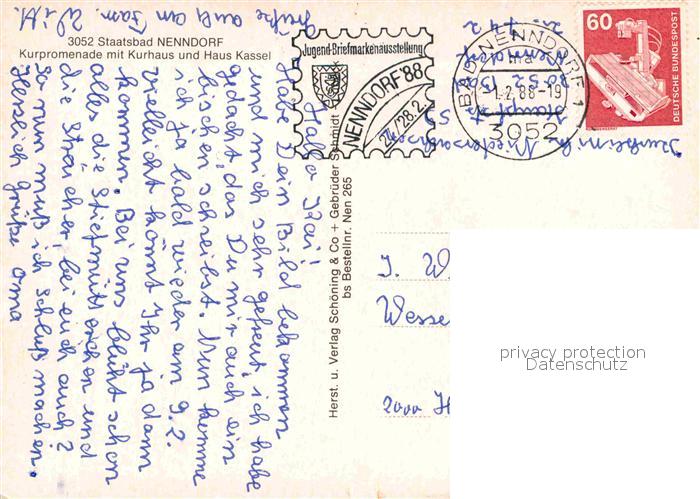 3052 Staatsbad NENNDORF
Kurpromenade mit Kurhaus und Haus Kassel
Hallo Kai!
Habe Dein Bild bekommen
und mich sehr gefreut, ich habe
gedacht, das Du mir auch ein
bischen schreibst. Nun komme
ich ja bald wieder am 9.2.
vielleicht kommt Ihr ja dann
kommen. Bei uns blüht schon
alles die Stiefmütterchen und
die Sträucher, bei euch auch?
So nun muß ich Schluß machen.
Herzlich grüße Oma
Grüße auch an Fam. W
Jugend-Briefmarkenausstellung
NENNDORF '88
27./28.2.
BAD NENNDORF 1
ma
-1.2.88-19
3052
60
DEUTSCHE BUNDESPOST
Niedersachsen
Herst. u. Verlag Schöning & Co + Gebrüder Schmidt
bs Bestellnr. Nen 265
J. W
Wesse
2000 H
privacy protection
Datenschutz